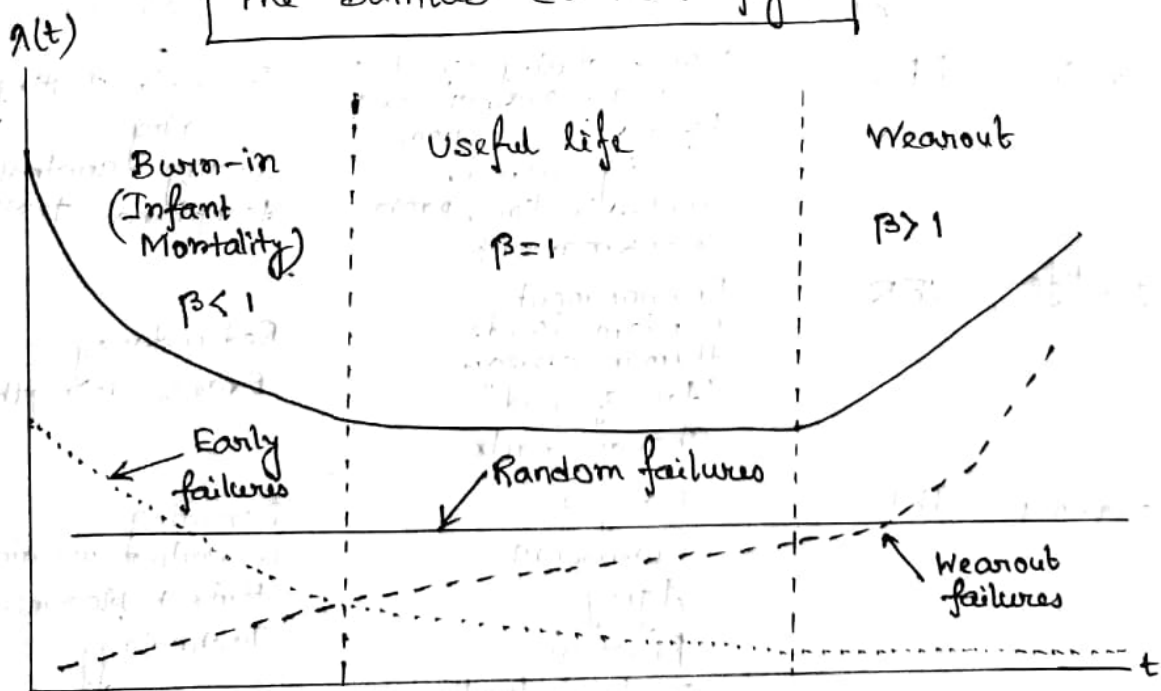 λ(t)
Burn-in
(Infant
Mortality)
β < 1
Useful life
β = 1
Wearout
β > 1
Early
failures
Random failures
Wearout
failures
t